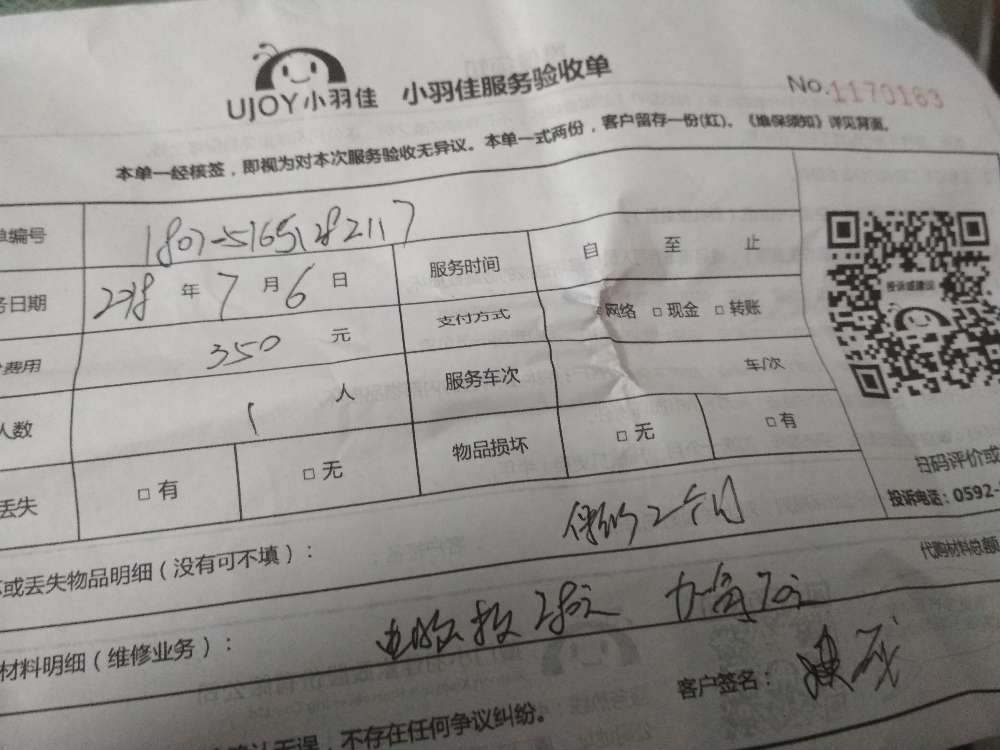 UJOY小羽佳 小羽佳服务验收单 No.1170183
本单一经核签，即视为对本次服务验收无异议。本单一式两份，客户留存一份(红)。《维保须知》详见背面。
单编号 180751651282117
务日期 2018年7月6日 服务时间 自 至 止
费用 350元 支付方式 网络 □现金 □转账
人数 1人 服务车次 车/次
丢失 □有 □无 物品损坏 □无 □有
投诉或建议
扫码评价或
投诉电话：0592-
或丢失物品明细（没有可不填）： 保修2个月
代购材料总额
材料明细（维修业务）： 280元 70元
客户签名：
确认无误，不存在任何争议纠纷。